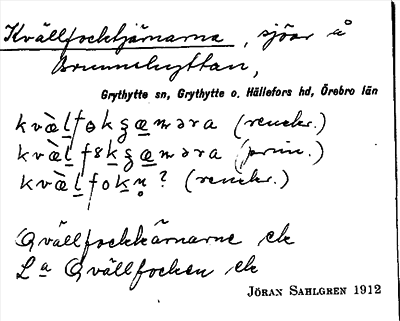 Kvällfocktjärnarna, sjöar å
Brunnshyttan,
Grythytte sn, Grythytte o. Hällefors hd, Örebro län
kvæ̀l̲fokʒæ̲nəra (renskr.)
kvæ̀l̲fɵk̲ʒæ̲nəra (prim.)
kvæ̀l̲fok̲n̥? (renskr.)
Qvällfockkärnarne ek
L^a Qvällfocken ek
JÖRAN SAHLGREN 1912